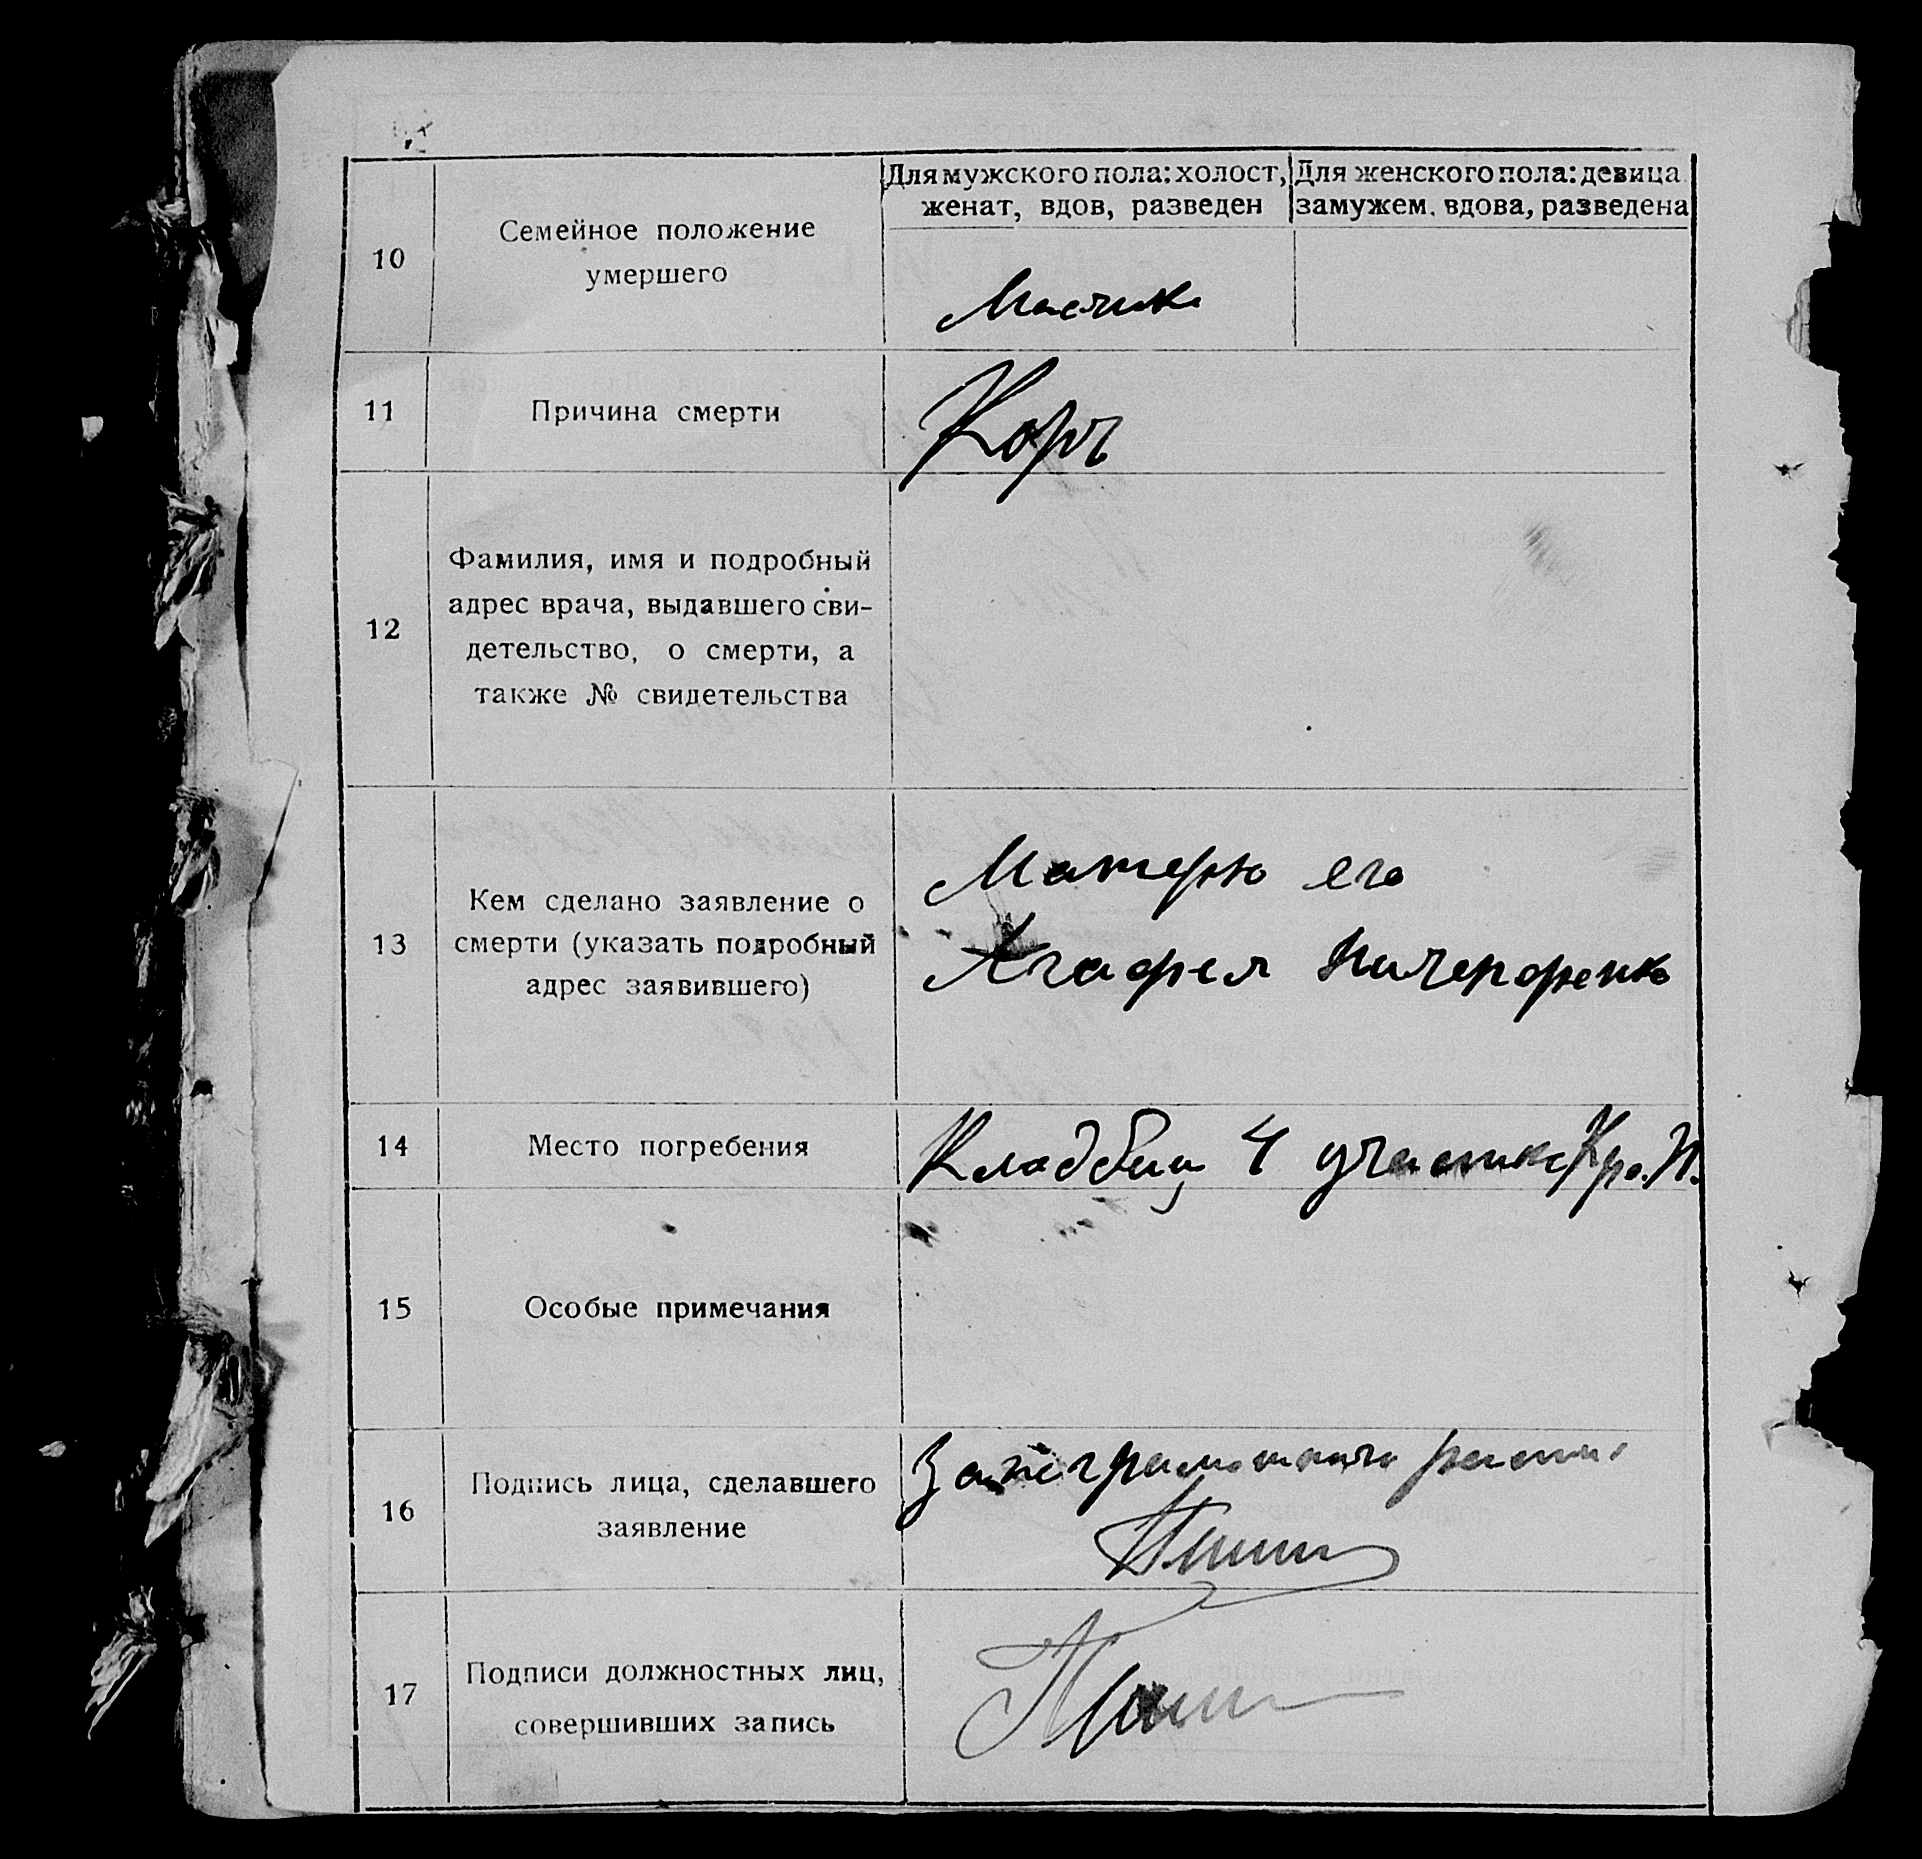 Для мужского пола: холост, женат, вдов, разведен
Для женского пола: девица замужем, вдова, разведена
10
Семейное положение
умершего
11
Причина смерти
Корь
12
Фамилия, имя и подробный
адрес врача, выдавшего сви-
детельство, о смерти, а
также № свидетельства
13
Кем сделано заявление о
смерти (указать подробный
адрес заявившего)
Матерью его
Агафья
14
Место погребения
Кладбищ 4 участка
15
Особые примечания
16
Подпись лица, сделавшего
заявление
За неграмотного
17
Подписи должностных лиц,
совершивших запись